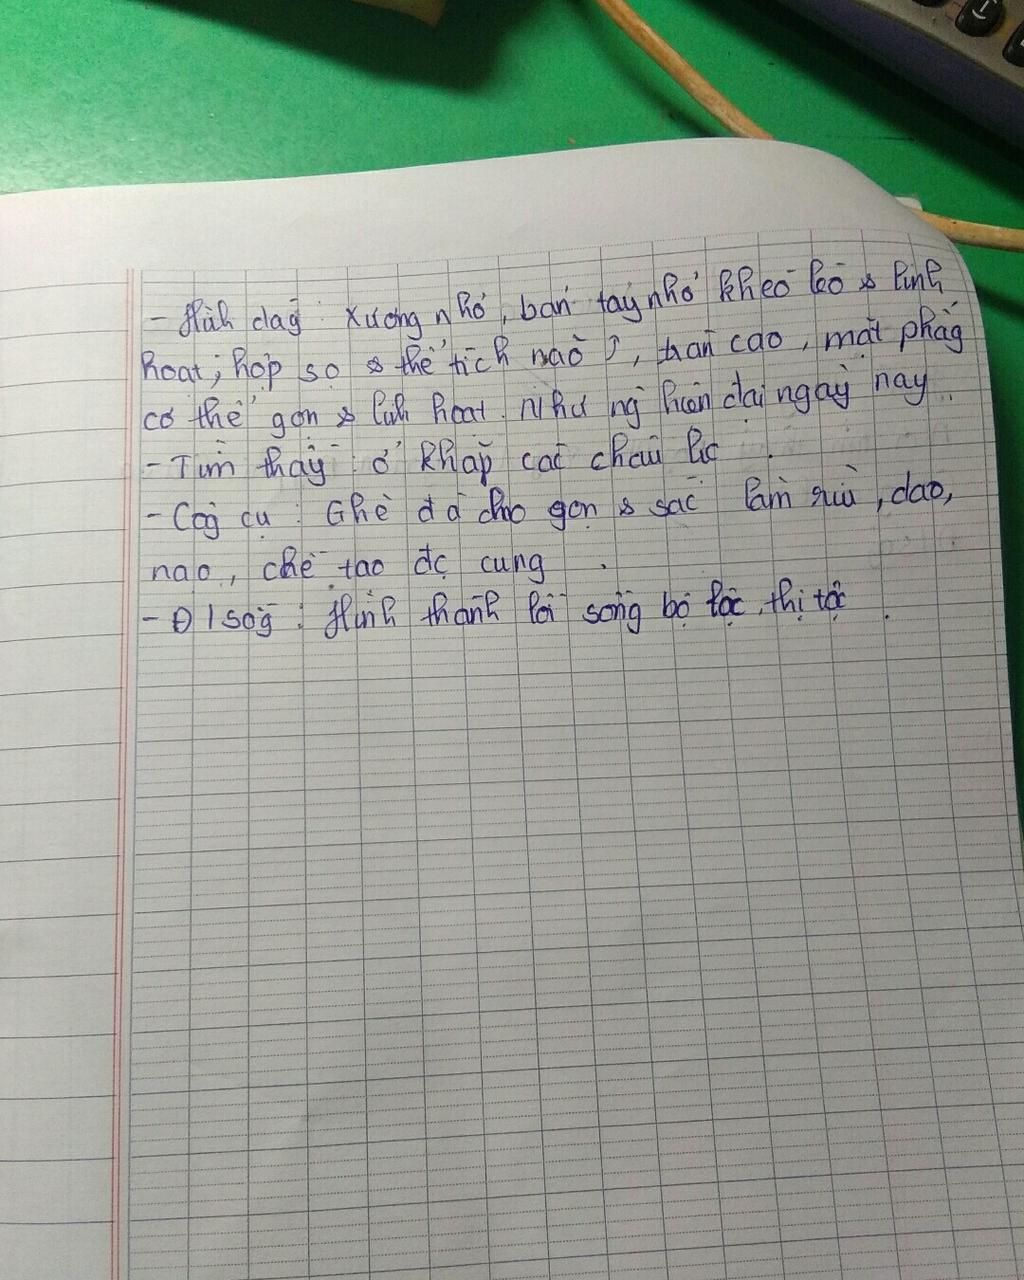 - Hìh dag̃ : Xương nhỏ, bàn tay nhỏ khéo léo & linh
hoạt; hộp sọ & thể tích não ↑, trán cao, mặt phẳg
cơ thể gọn & lih hoạt. Như ng̀ hiện đại ngày nay.
- Tìm thấy : ở khắp các châu lục.
- Côg cụ : Ghè đá cho gọn & sắc làm rìu, dao,
nạo, chế tạo đc cung.
- Đ/sốg : Hình thành lối sống bộ lạc, thị tộc.